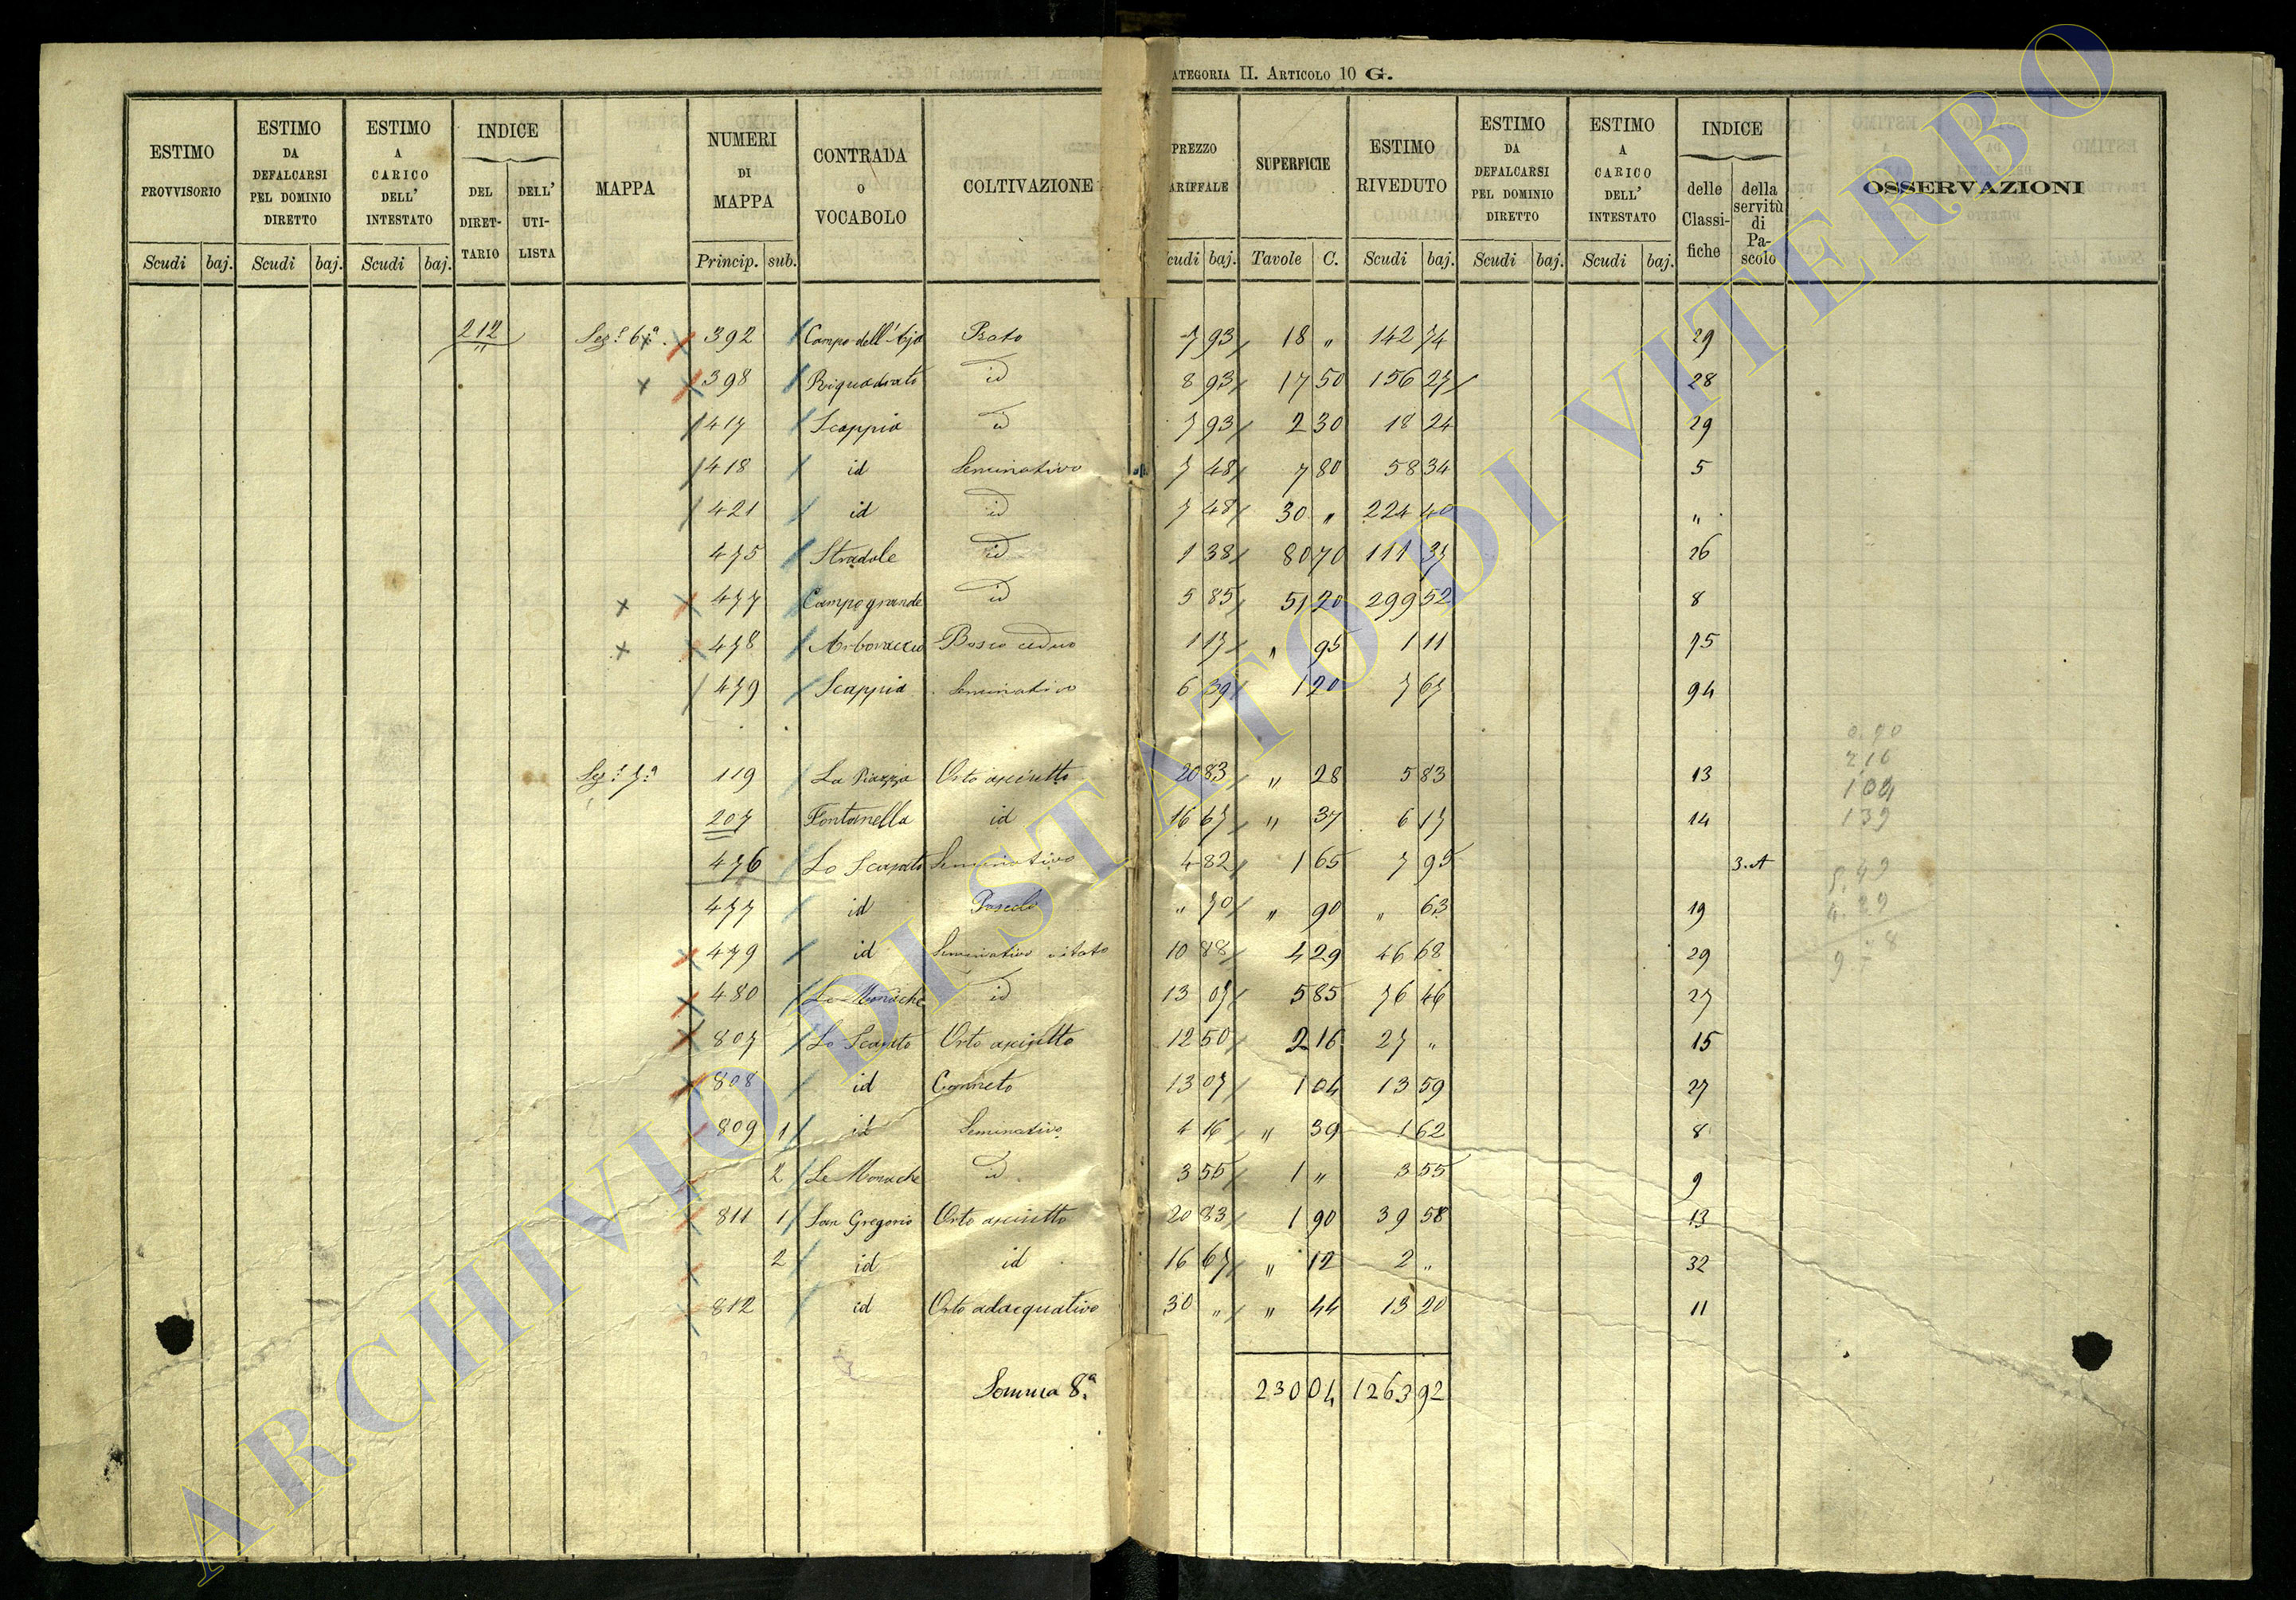 ATEGORIA II. ARTICOLO 10 G.
ESTIMO PROVVISORIO Scudi baj.
ESTIMO DA DEFALCARSI PEL DOMINIO DIRETTO Scudi baj.
ESTIMO A CARICO DELL' INTESTATO Scudi baj.
INDICE DEL DIRET-TARIO DELL' UTI-LISTA
MAPPA
NUMERI DI MAPPA Princip. sub.
CONTRADA O VOCABOLO
COLTIVAZIONE
PREZZO ARIFFALE cudi baj.
SUPERFICIE Tavole C.
ESTIMO RIVEDUTO Scudi baj.
ESTIMO DA DEFALCARSI PEL DOMINIO DIRETTO Scudi baj.
ESTIMO A CARICO DELL' INTESTATO Scudi baj.
INDICE delle Classi-fiche della servitù di Pa-scolo
OSSERVAZIONI
212 Sez.e 6.a 392 Campo dell'Aja Prato 7 93 18 " 142 74 29
398 Riquadrato id 8 93 17 50 156 27 28
417 Scappia id 7 93 2 30 18 24 29
418 id Seminativo 7 48 7 80 58 34 5
421 id id 7 48 30 " 224 40 "
475 Stradale id 1 38 80 70 111 37 26
477 Campo grande id 5 85 51 20 299 52 8
478 Arboraccio Bosco ceduo 1 17 " 95 1 11 75
479 Scappia Seminativo 6 39 1 20 7 67 94
Sez.e 7.a 119 La Piazza Orto asciutto 20 83 " 28 5 83 13
207 Fontanella id 16 67 " 37 6 17 14
476 Lo Scasato Seminativo 4 82 1 65 7 95 3.A
477 id Pascolo " 70 " 90 " 63 19
479 id Seminativo vitato 10 88 4 29 46 68 29
480 Le Monache id 13 07 5 85 76 46 27
807 Lo Scasato Orto asciutto 12 50 2 16 27 " 15
808 id Canneto 13 07 1 04 13 59 27
809 1 id Seminativo 4 16 " 39 1 62 8
2 Le Monache id 3 55 1 " 3 55 9
811 1 San Gregorio Orto asciutto 20 83 1 90 39 58 13
2 id id 16 67 " 12 2 " 32
812 id Orto adacquativo 30 " " 44 13 20 11
Somma 8.a 230 04 1263 92
ARCHIVIO DI STATO DI VITERBO